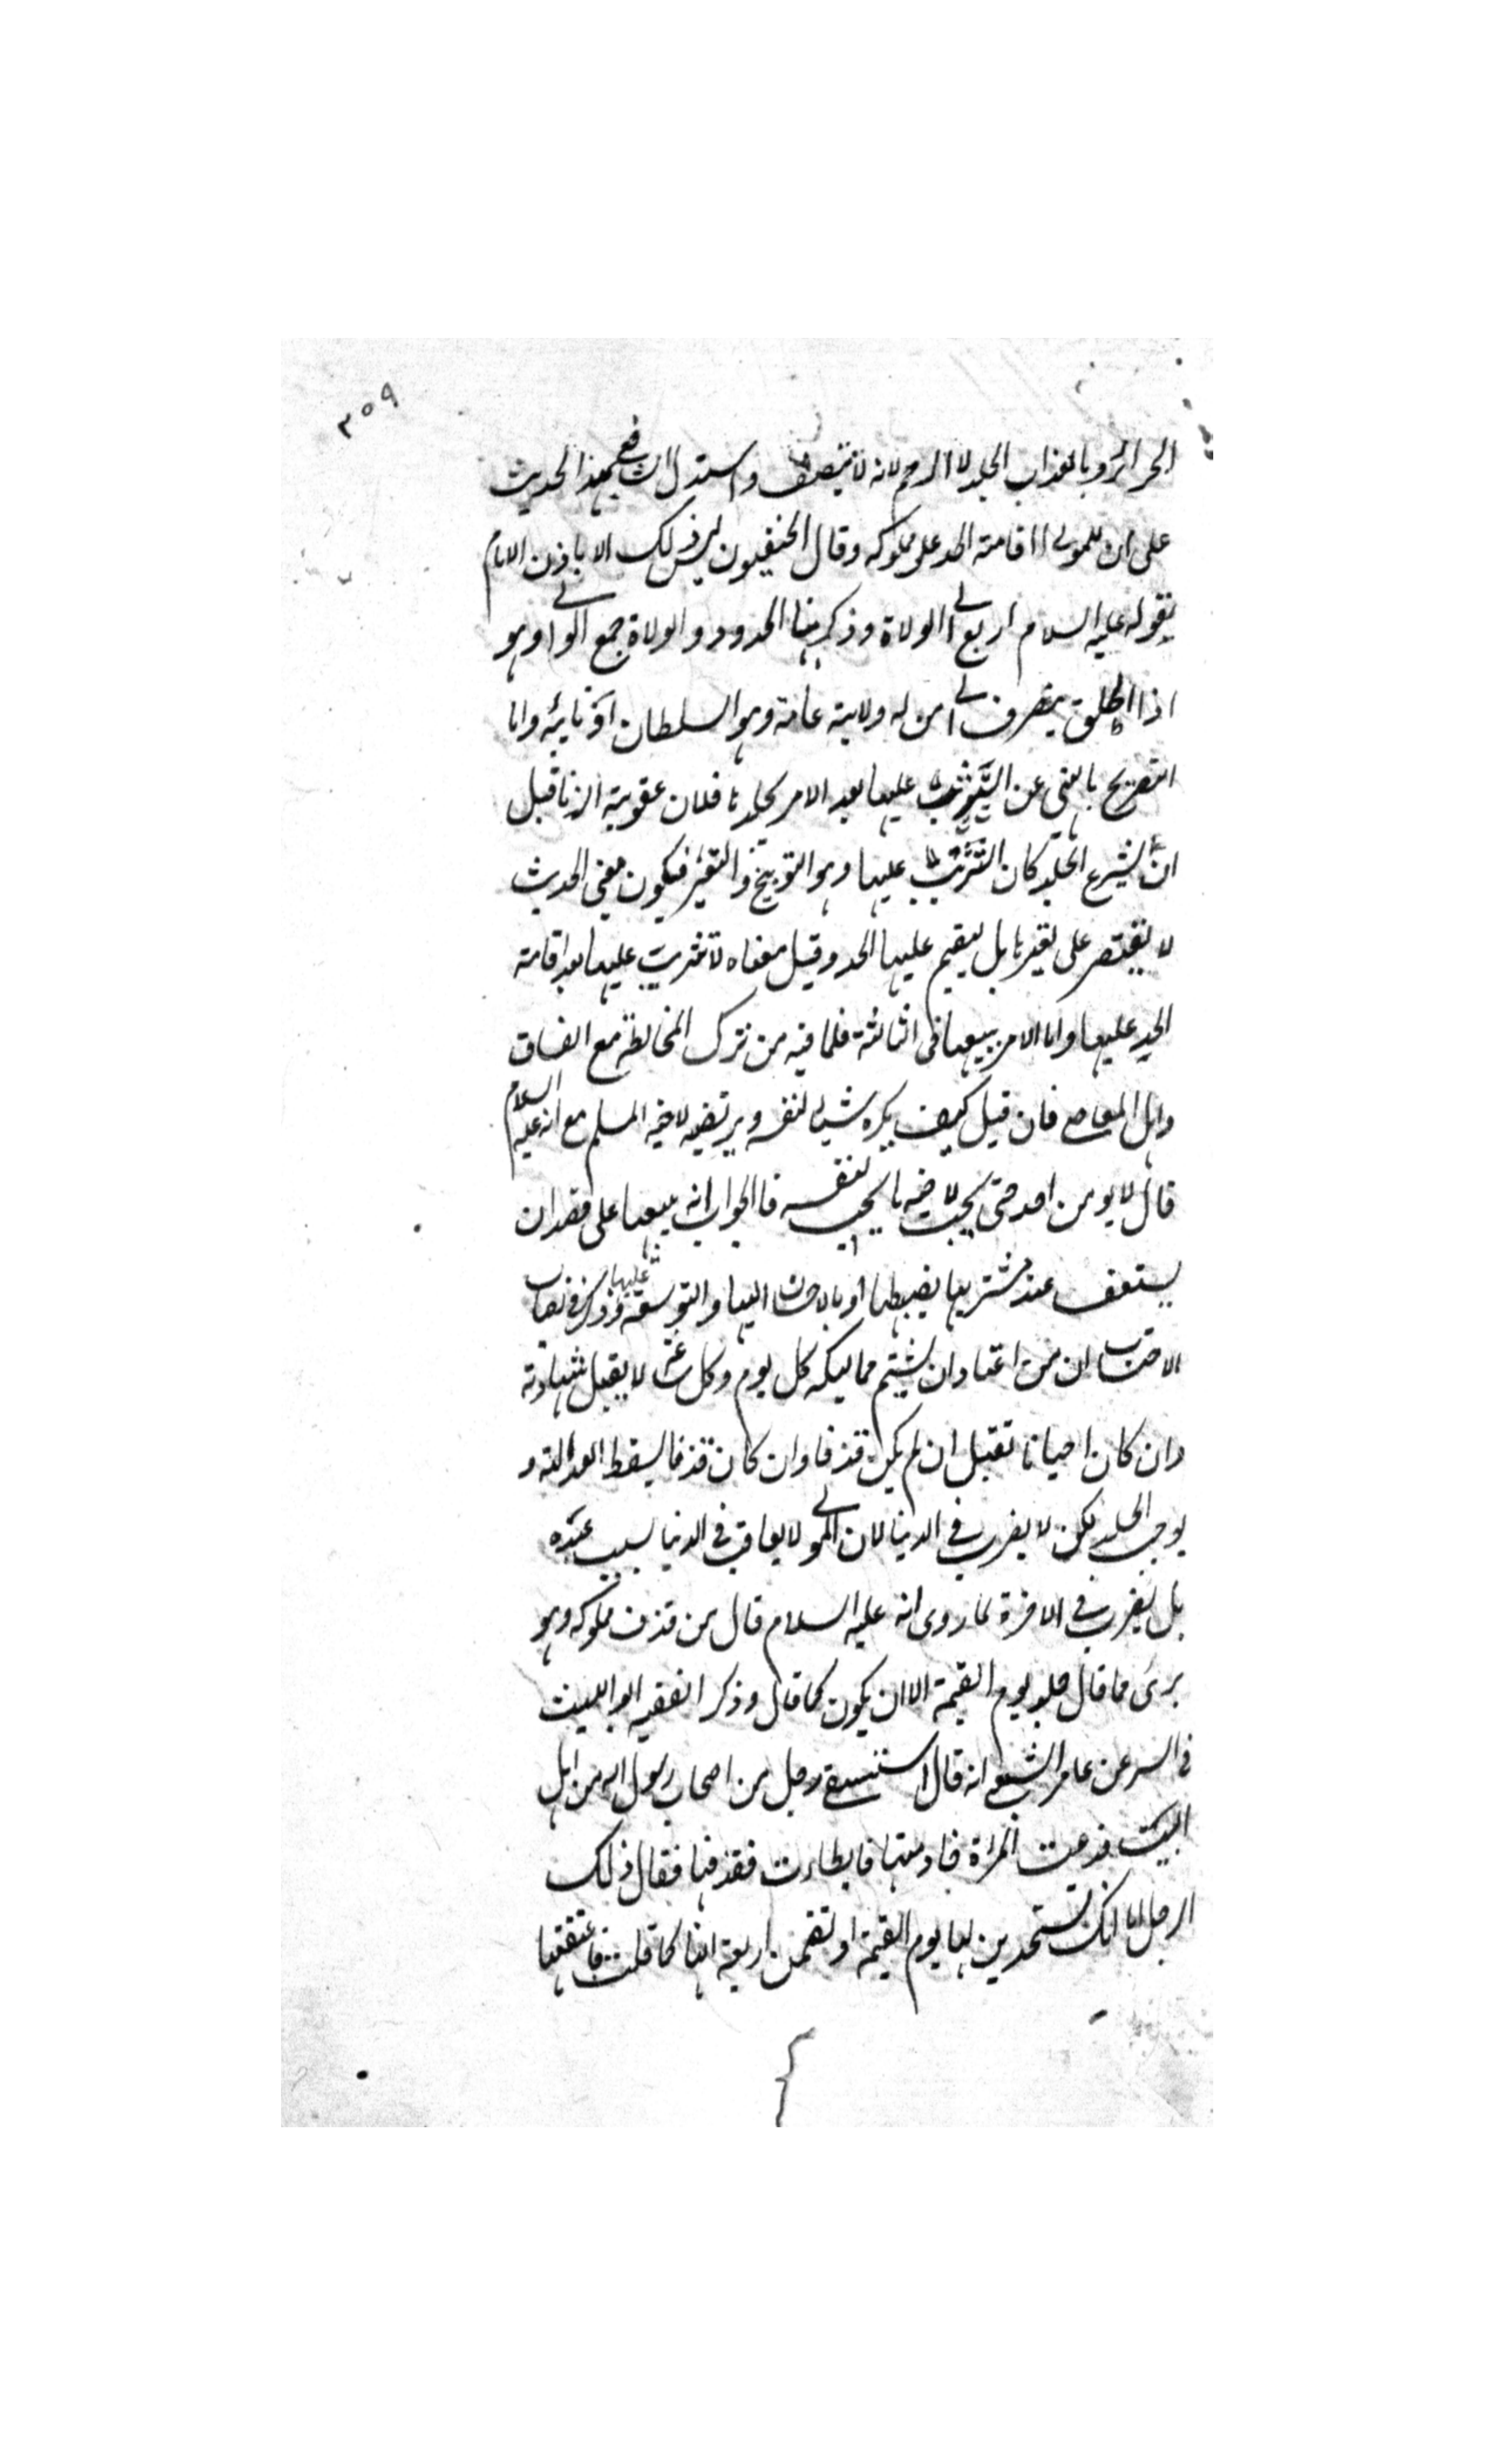 ٣٥٩
الحرائر وبالعذاب الجلد لا الرجم لانه لا يتنصف واستدل الشافعي بهذا الحديث
على ان للمولى اقامة الحد على مملوكه وقال الحنفيون ليس ذلك الا باذن الامام
لقوله عليه السلام اربع الى الولاة وذكر منها الحدود والولاة جمع الوالي وهو
اذا اطلق يتصرف الى من له ولاية عامة وهو السلطان او نايبه واما
التصريح بالنهي عن التثريب عليها بعد الامر بجلدها فلان عقوبة الزنا قبل
ان يشرع الجلد كان التثريب عليها وهو التوبيخ والتعيير فيكون معنى الحديث
لا يقتصر على تعييرها بل يقيم عليها الحد وقيل معناه لا تثريب عليها بعد اقامة
الحد عليها واما الامر ببيعها في الثالثة فلما فيه من ترك المخالطة مع الفساق
واهل المعاصي فان قيل كيف يكره شيئا لنفسه ويرتضيه لاخيه المسلم مع انه عليه السلام
قال لا يؤمن احدكم حتى يحب لاخيه ما يحب لنفسه فالجواب انه يبيعها على قصد ان
يستعف عند مشتريها بضبطها او بالاحسان اليها والتوسعة عليها وذكر في نصاب
الاحتساب ان من اعتاد ان يشتم مماليكه كل يوم وكل ساعة لا يقبل شهادته
وان كان احيانا تقبل ان لم يكن قذفا وان كان قذفا يسقط العدالة و
يوجب الجلد لكن لا يضرب في الدنيا لان المولى لا يعاقب في الدنيا بسبب عبده
بل يضرب في الاخرة لما روي انه عليه السلام قال من قذف مملوكه وهو
برئ مما قال جلد يوم القيمة الا ان يكون كما قال وذكر الفقيه ابو الليث
في السر عن عامر الشعبي انه قال استسقى رجل من اصحاب رسول الله من اهل
البيت فدعت المراة خادمتها فابطاءت فقذفتها فقال ذلك
الرجل اما انك تستحدين لها يوم القيمة او تقيمين اربعة انها كما قلت فاعتقتها